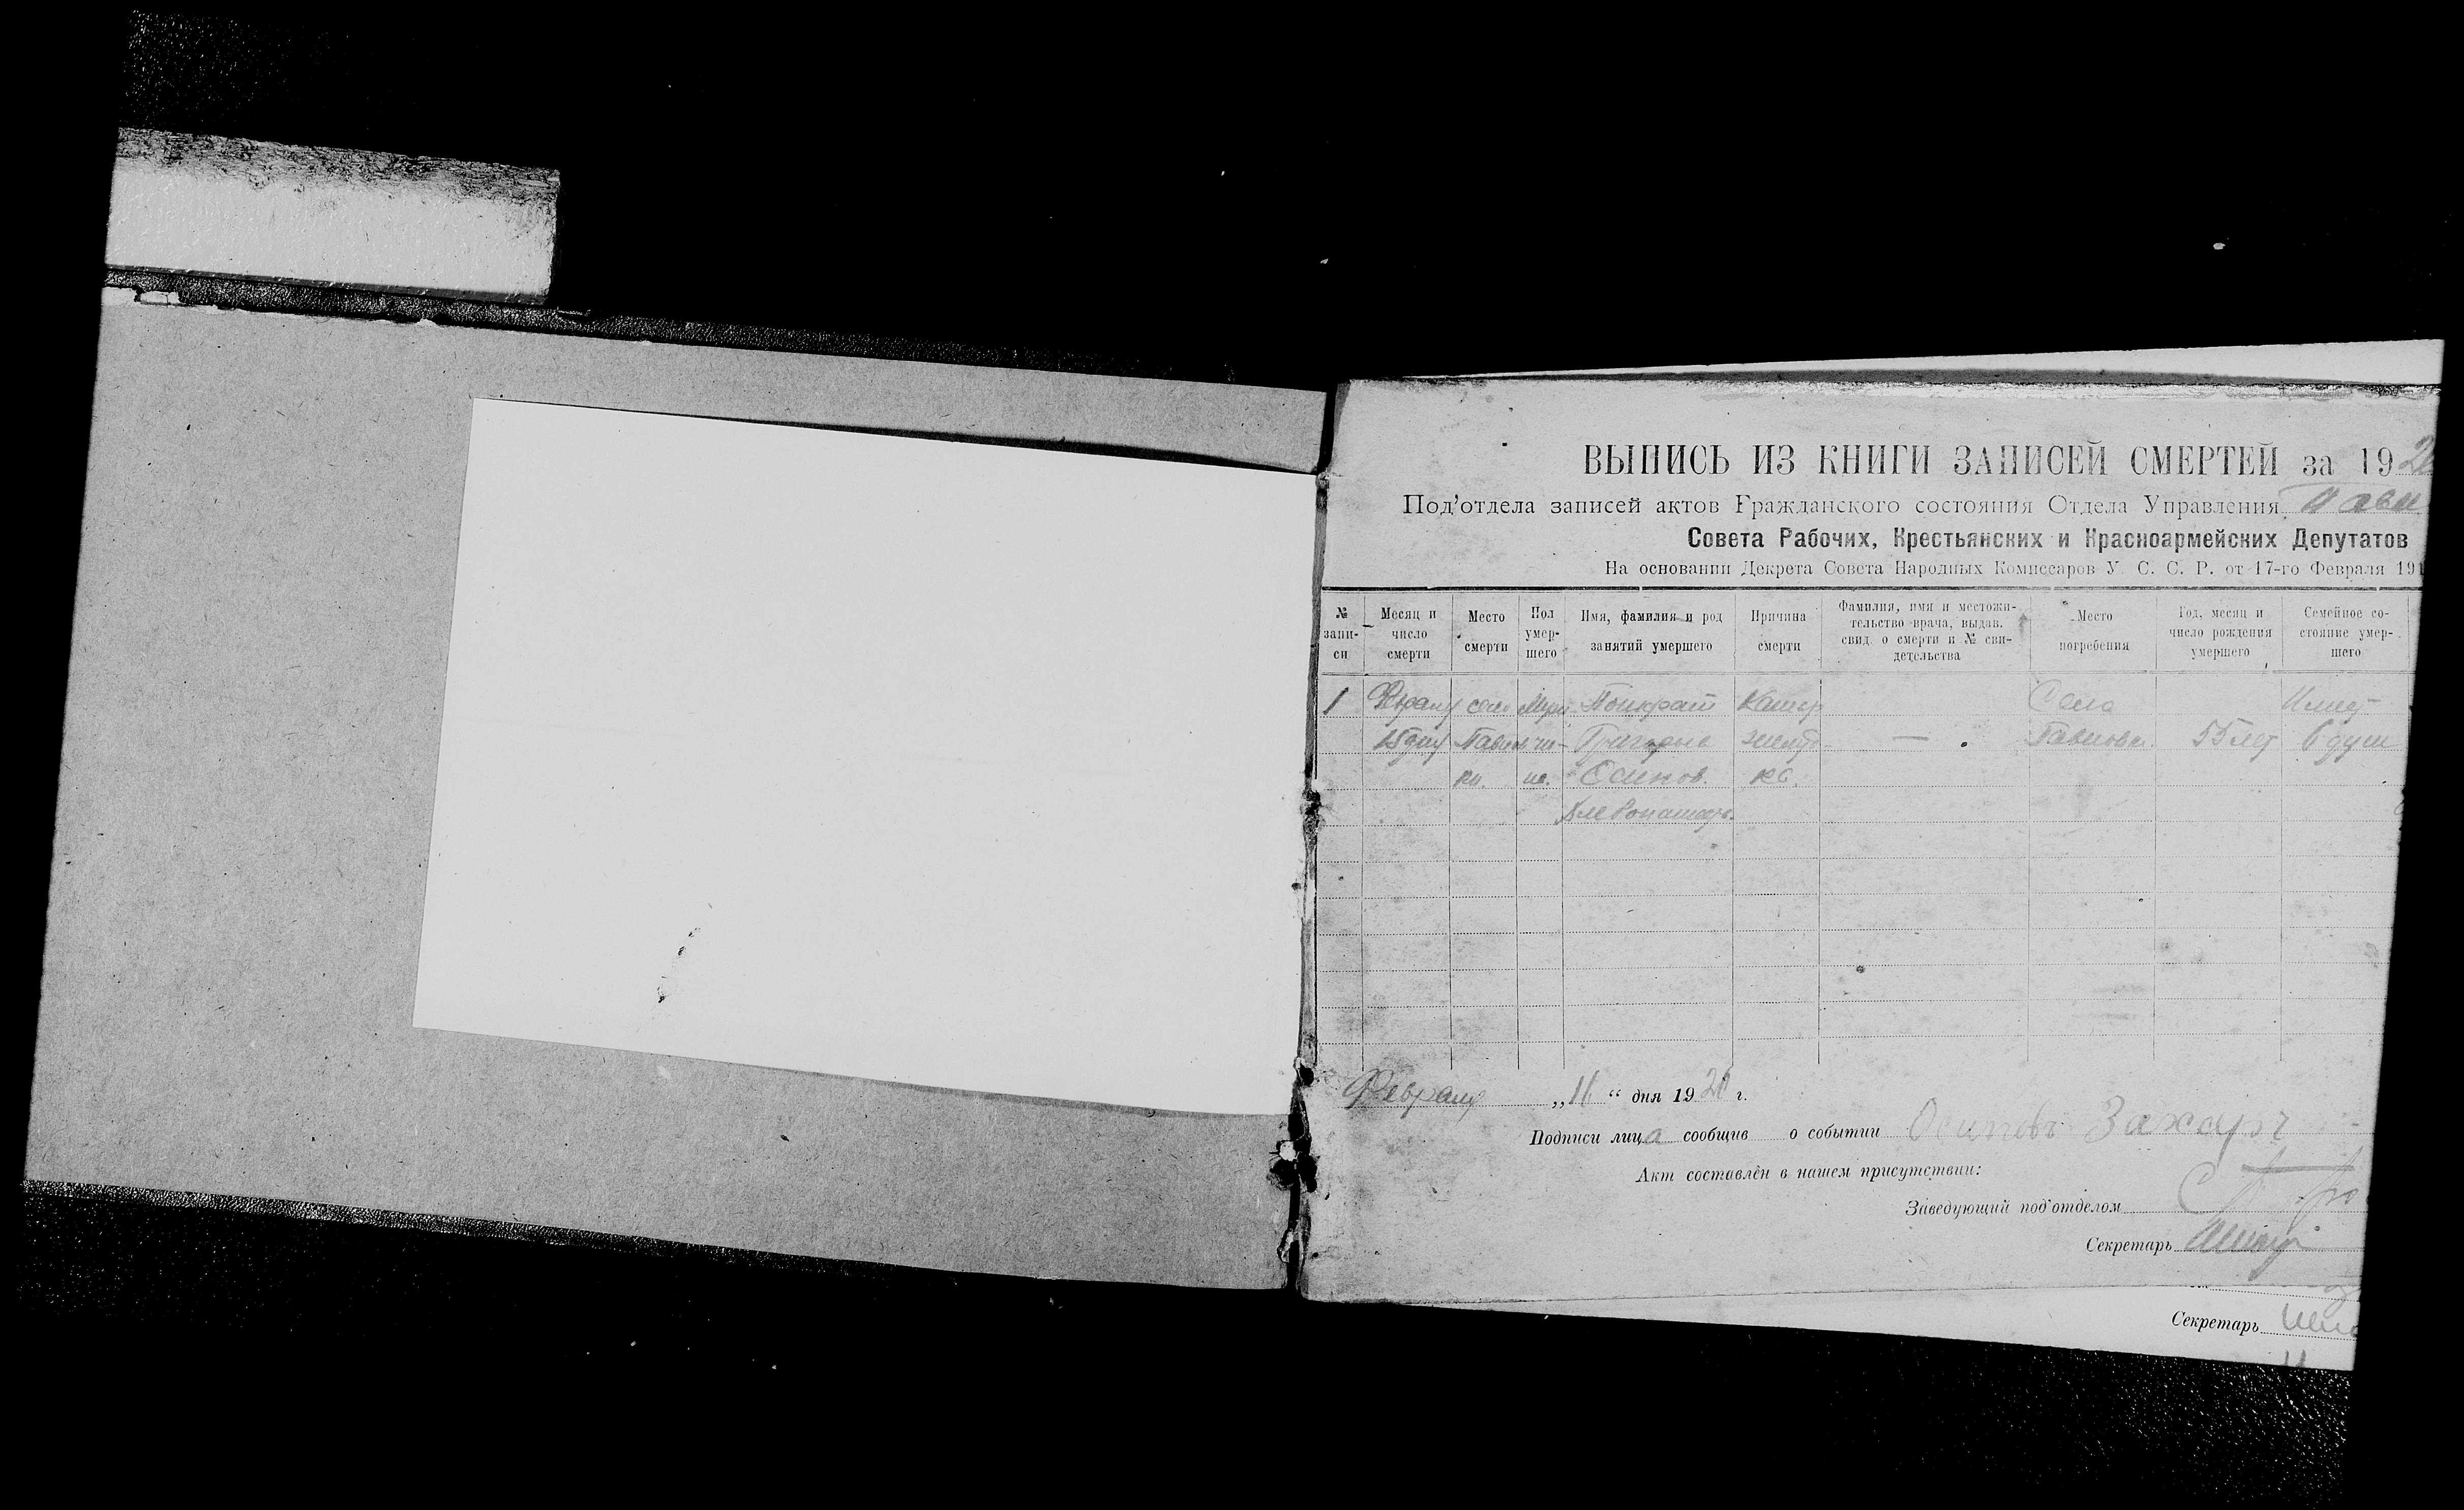 ВЫПИСЬ ИЗ КНИГИ ЗАПИСЕЙ СМЕРТЕЙ за 192
Под'отдела записей актов Гражданского состояния Отдела Управления
Совета Рабочих, Крестьянских и Красноармейских Депутатов
На основании Декрета Совета Народных Комиссаров У. С. С. Р. от 17-го Февраля 191
№ записи
Месяц и число смерти
Место смерти
Пол умершего
Имя, фамилия и род занятий умершего
Причина смерти
Фамилия, имя и местожительство врача, выдав. свид. о смерти и № свидетельства
Место погребения
Год, месяц и число рождения умершего
Семейное состояние умершего
1 Февраля село Понкрат Катар Села Имеет
15 дня Григорьев желуд — 55 лет 6 душ
ка. Осипов. ка.
Хлебопашец
Февраля „16“ дня 192 г.
Подписи лица сообщив о событии Осипов Захар
Акт составлен в нашем присутствии:
Заведующий под'отделом
Секретарь
Секретарь